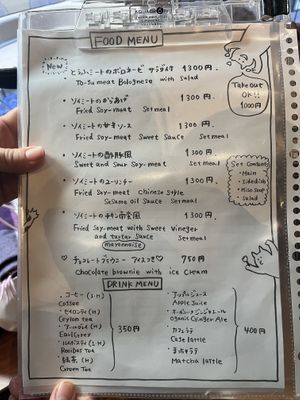 FOOD MENU
New
とうふミートのボロネーゼ サラダ付 1300円
To-fu meat Bolognese with Salad
Take out OK!!
1000円
・ソイミートのからあげ 1300円
Fried Soy-meat Setmeal
・ソイミートの甘辛ソース 1300円
Fried Soy-meat Sweet Sauce Setmeal
・ソイミートの酢豚風 1300円
Sweet and Sour Soy-meat Setmeal
Set Contents
・Main
・Sidedish
・Miso Soup
・Salad
・ソイミートのユーリンチー 1300
Fried Soy-meat Chinese Style
Sesame oil Sauce Setmeal
・ソイミートのチキン南蛮風 1300円
Fried Soy-meat with Sweet Vineger
and tartar Sauce Setmeal
mayonnaise
♡チョコレートブラウニー アイスつき♡ 750円
Chocolate brownie with ice Cream
DRINK MENU
・コーヒー (I・H)
Coffee
・セイロンティ (I・H)
Ceylon tea
・アールグレイ (H)
Earl Grey
・ルイボスティ (I・H)
Rooibos Tea
・緑茶 (H)
Green Tea
350円
・アップルジュース
Apple Juice
・オーガニックジンジャエール
Oganic Ginger Ale
・カフェラテ
Cafe latte
・まっちゃラテ
Matcha latte
400円